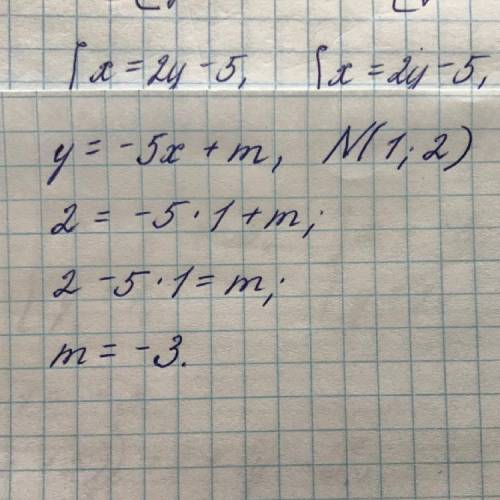 {x = 2y - 5, {x = 2y - 5,
y = -5x + m, N(1; 2)
2 = -5 · 1 + m;
2 - 5 · 1 = m;
m = -3.